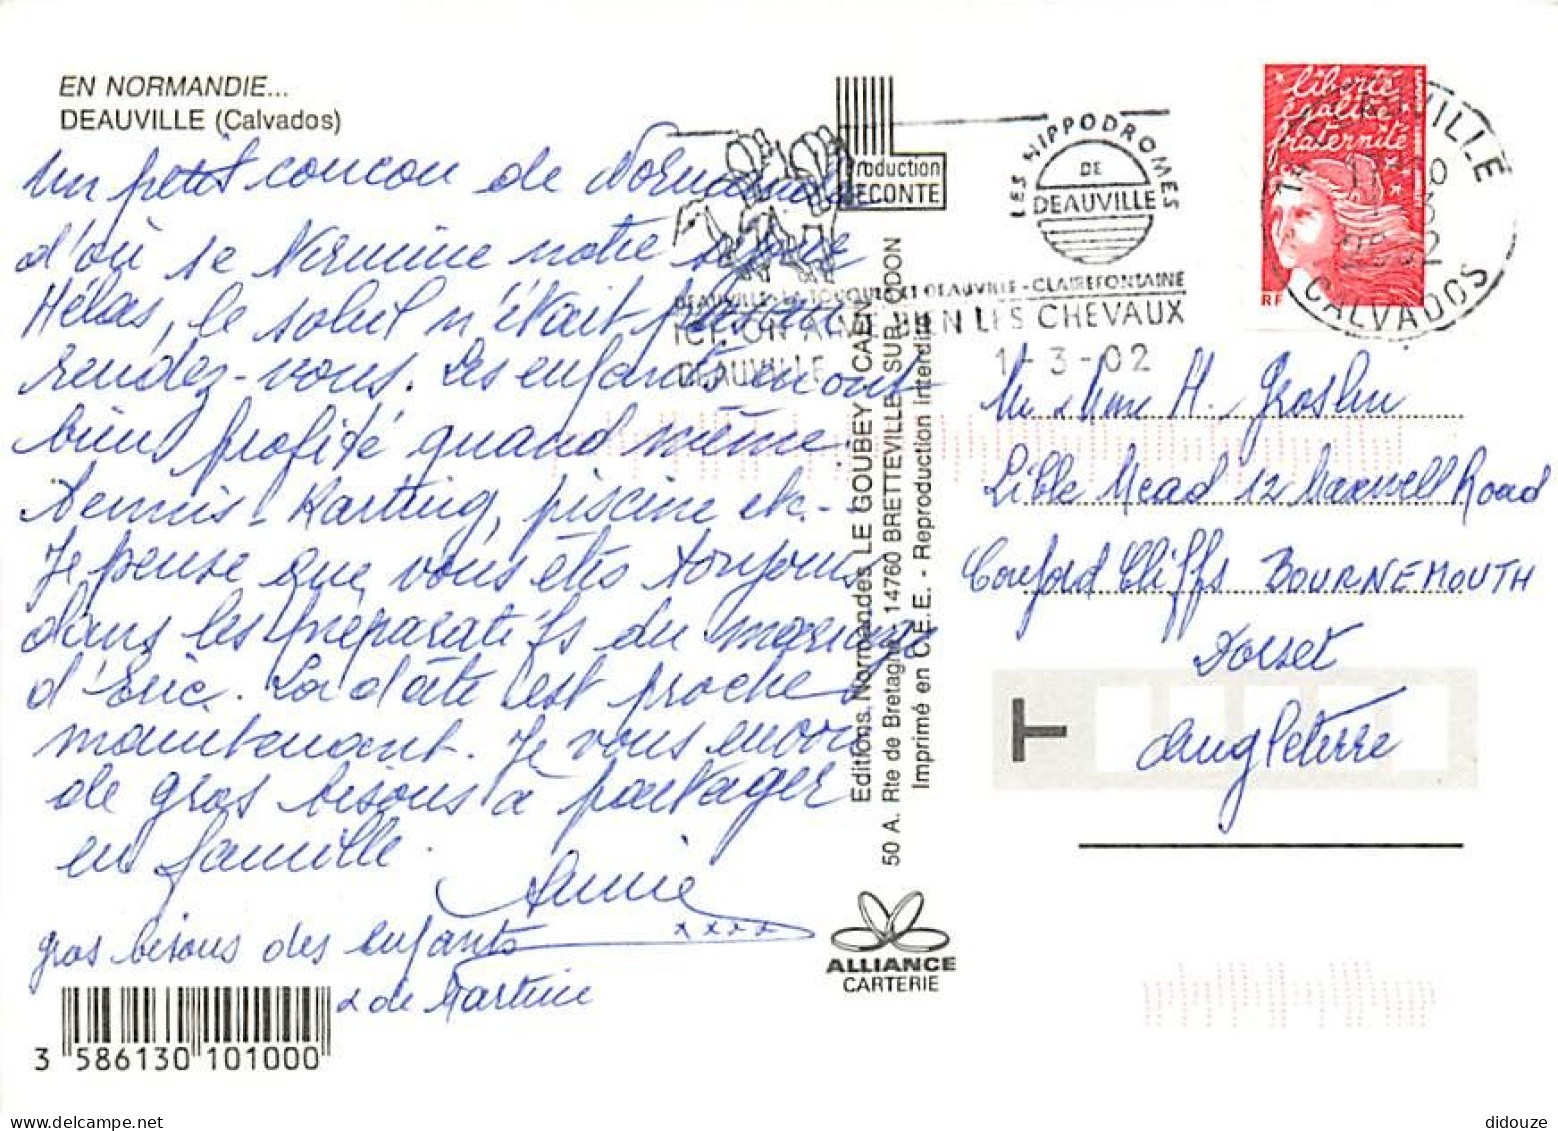 EN NORMANDIE...
DEAUVILLE (Calvados)
un petit coucou de Normandie
d'où se termine notre semaine
Hélas, le soleil n'était pas au
rendez-vous. Les enfants en ont
bien profité quand même.
Tennis - Karting, piscine etc.-
Je pense que vous êtes toujours
dans les préparatifs du mariage
d'Eric. La date est proche
maintenant. Je vous envoie
de gros bisous à partager
en famille.
Annie
xxxx
gros bisous des enfants
& de Martine
3 586130 101000
Production
LECONTE
Editions Normandes LE GOUBEY CAEN
50 A. Rte de Bretagne - 14760 BRETTEVILLE-SUR-ODON
Imprimé en C.E.E. - Reproduction interdite
ALLIANCE
CARTERIE
LES HIPPODROMES
DE
DEAUVILLE
DEAUVILLE - LA TOUQUES ET DEAUVILLE - CLAIREFONTAINE
ICI, ON AIME BIEN LES CHEVAUX
DEAUVILLE 1-3-02
liberté
égalité
fraternité
RF
14 DEAUVILLE
CALVADOS
Mr & Mme H.
Mead 12 Maxwell Road
Canford Cliffs BOURNEMOUTH
Dorset
Angleterre
T
didouze